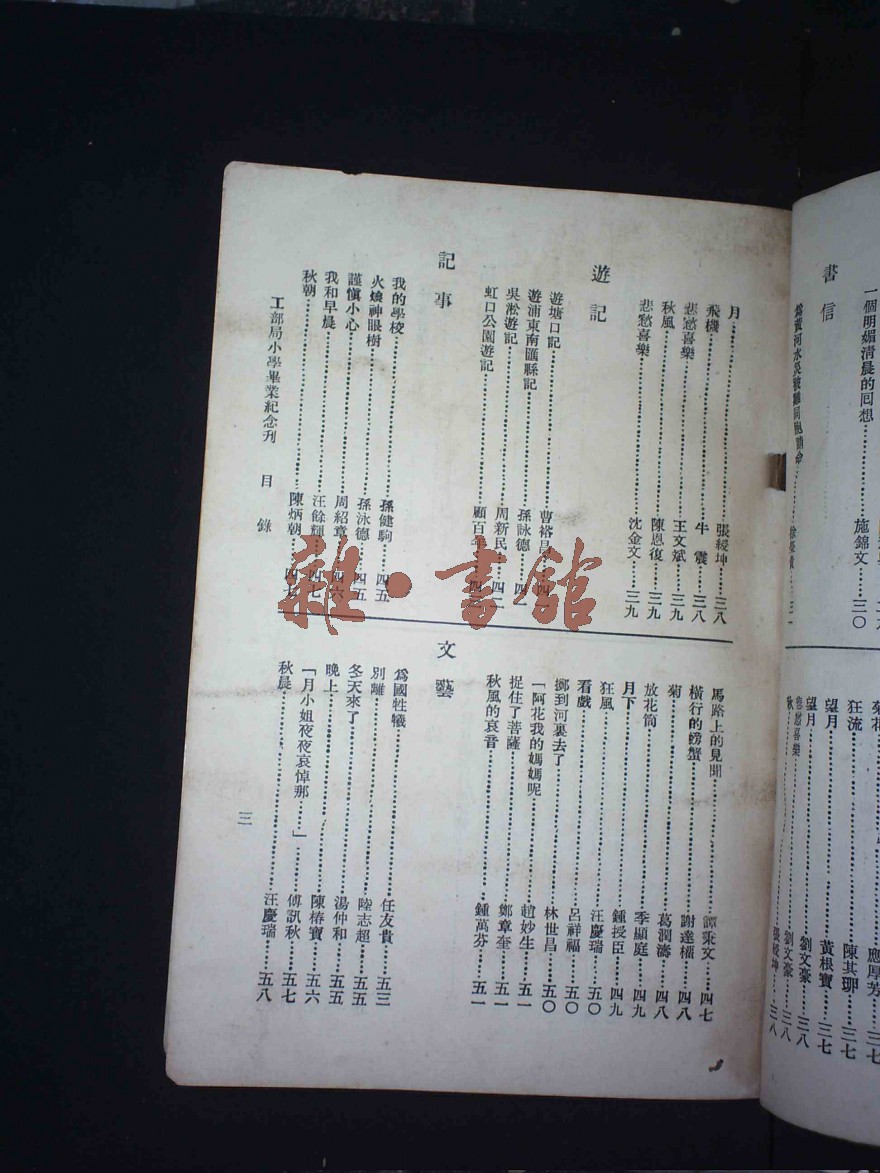 一個明媚清晨的回想……施錦文…三〇
書信
菊花
應厚芳……三七
狂流……陳其珋……三七
望月……黃根寶……三七
望月……劉文豪……三八
悲愁喜樂……劉文豪……三八
秋……張綬坤……三八
月……張綬坤…三八
飛機……牛震……三八
悲愁喜樂……王文斌……三九
秋風……陳恩復……三九
悲愁喜樂……沈金文……三九
遊記
遊塘口記……曹裕昌
遊浦東南匯縣記……孫詠德……四一
吳淞遊記……周新民
虹口公園遊記……顧百年
記事
我的學校……孫健駒……四五
火燒神眼樹……孫泳德……四五
謹慎小心……周紹章……四六
我和早晨……汪餘輝……四七
秋朝……陳炳朝……四七
馬路上的見聞……譚秉文…四七
橫行的螃蟹……謝達權……四八
菊……葛潤濤……四八
放花筒……季顯庭……四九
月下……鍾授臣……四九
狂風……汪慶瑞……五〇
看戲……呂祥福……五〇
擲到河裏去了……林世昌……五〇
「阿花我的媽媽呢……趙妙生……五一
捉住了菩薩……鄭章奎……五一
秋風的哀音……鍾萬芬……五一
文藝
爲國牲犧……任友貴……五三
別離……陸志超……五五
冬天來了……湯仲和……五五
晚上……陳椿寶……五六
「月小姐夜夜哀悼那……」……傅訊秋……五七
秋晨……汪慶瑞……五八
工部局小學畢業紀念刊 目錄
三
雜·書館